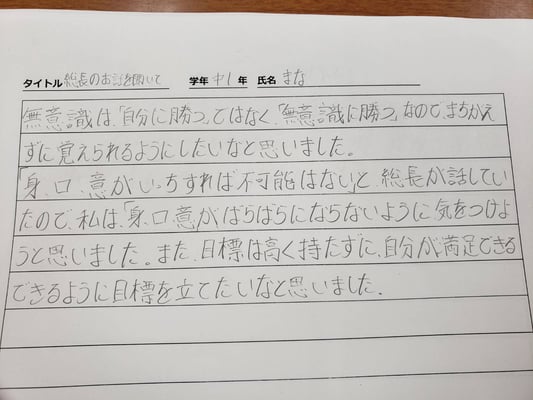 タイトル 総長のお話を聞いて 学年 中1 年 氏名 まな
無意識は、「自分に勝つ」ではなく、「無意識に勝つ」なので、まちがえ
ずに覚えられるようにしたいなと思いました。
「身、口、意がいっちすれば不可能はない」と、総長が話してい
たので、私は、「身、口、意」がばらばらにならないように気をつけよ
うと思いました。また、目標は高く持たずに、自分が満足できる
できるように目標を立てたいなと思いました。